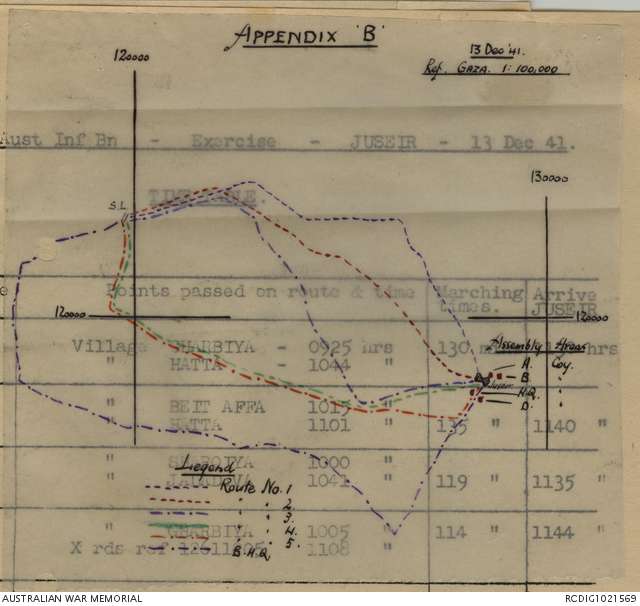 APPENDIX 'B'
13 Dec '41.
Ref. GAZA. 1: 100,000
120000
130000
Aust Inf Bn - Exercise - JUSEIR - 13 Dec 41.
S.L.
Points passed on route & time
Marching times.
Arrive JUSEIR
120000
120000
Village GHARBIYA - 0925 hrs 130 hrs
" HATTA - 1044 "
Assembly Areas
A. Coy.
B. "
H.Q. "
D. "
Juseir
" BEIT AFFA 1015 "
" HATTA 1101 " 135 " 1140 "
" 1000 "
" 1041 " 119 " 1135 "
Legend
Route No. 1
" " 2.
" " 3.
" " 4.
" " 5.
B.H.Q.
" GHARBIYA 1005 " 114 " 1144 "
X rds ref 1108 "
AUSTRALIAN WAR MEMORIAL
RCDIG1021569